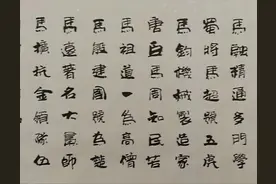 馬融精通多門學
蜀將馬超號五虎
馬鈞機械製造家
唐臣馬周知民苦
馬祖道一為高僧
馬殷建國號為楚
馬遠著名大畫師
馬擴抗金領隊伍